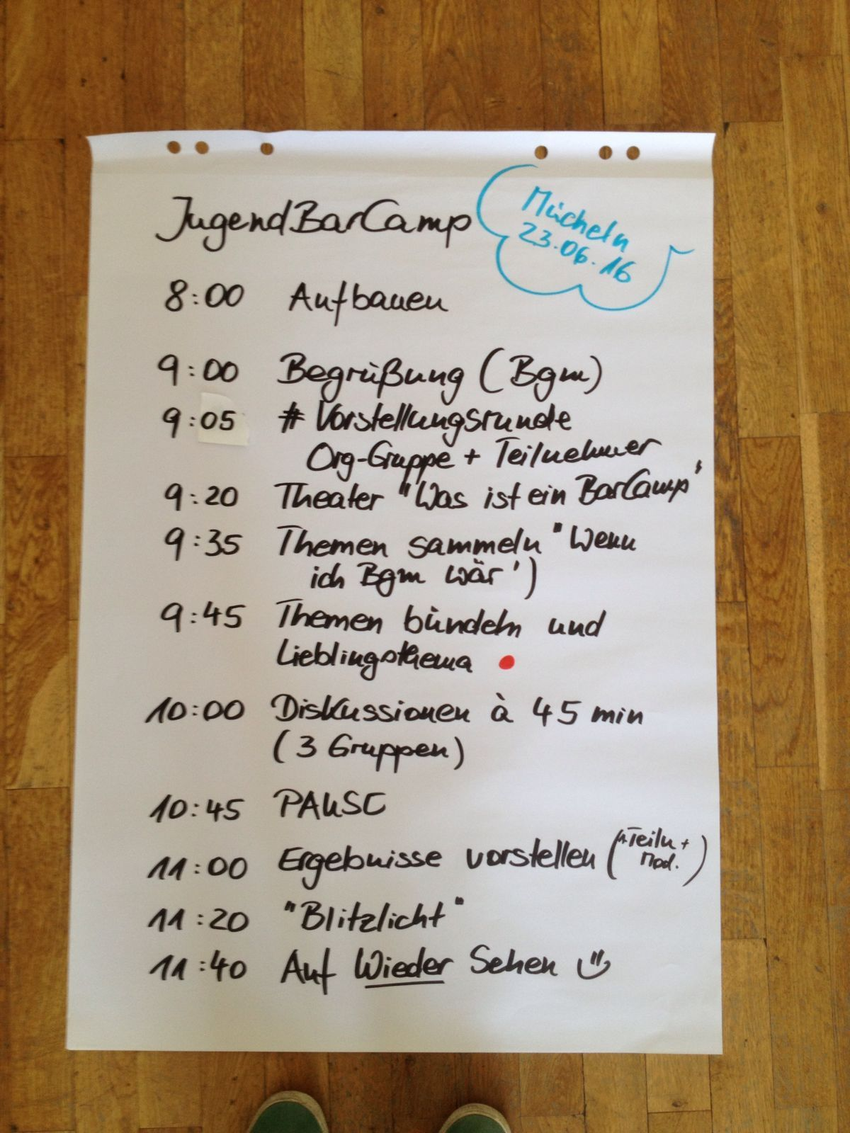 JugendBarCamp
Mücheln
23.06.16
8:00 Aufbauen
9:00 Begrüßung (Bgm)
9:05 # Vorstellungsrunde
Org-Gruppe + Teilnehmer
9:20 Theater "Was ist ein BarCamp"
9:35 Themen sammeln "Wenn
ich Bgm wär')
9:45 Themen bündeln und
Lieblingsthema
10:00 Diskussionen à 45 min
(3 Gruppen)
10:45 PAUSE
11:00 Ergebnisse vorstellen (Teiln +
Mod.)
11:20 "Blitzlicht"
11:40 Auf Wieder Sehen